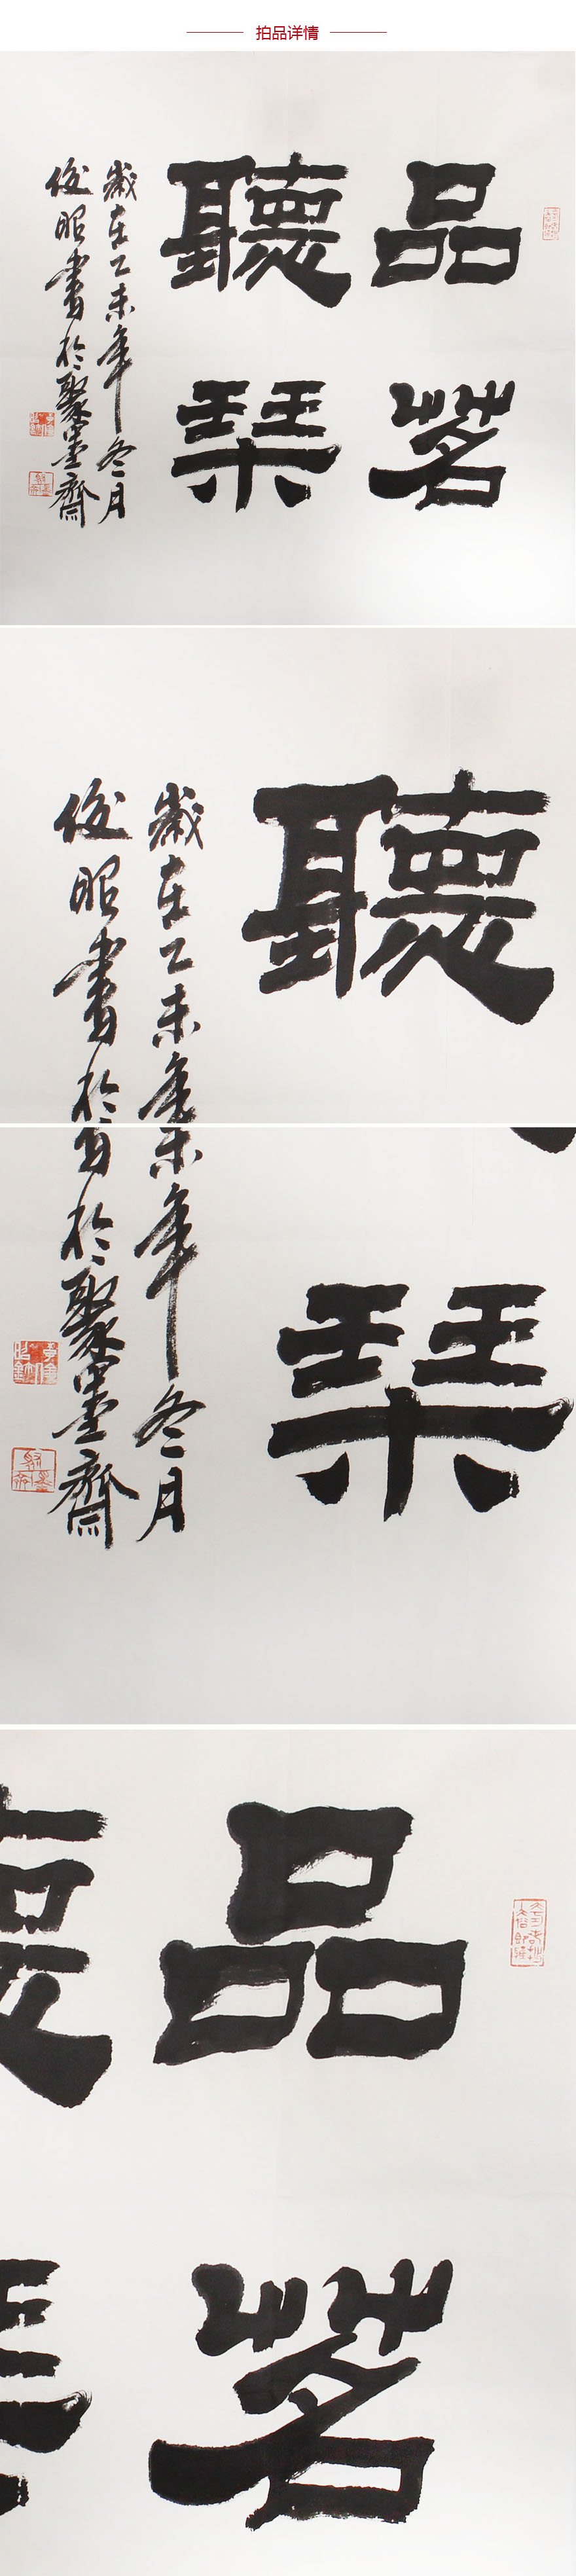 拍品详情
品茗
聽琹
歲在乙未年冬月
俊昭書於聚墨齋
聽
歲在乙未年
俊昭書於
琹
未年冬月
書於聚墨齋
品茗